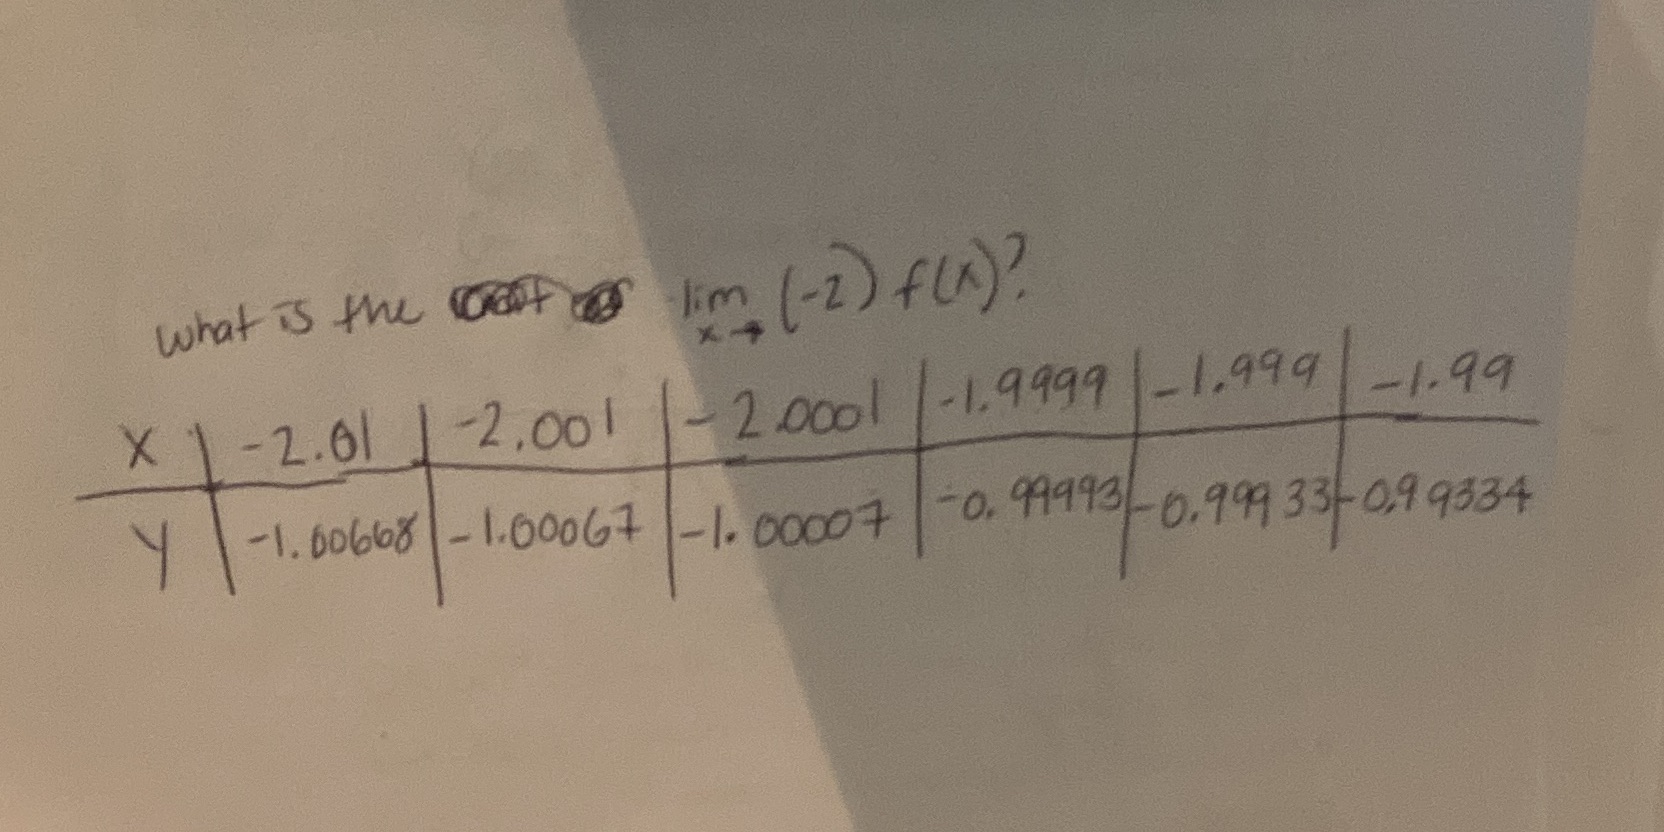 what is the lim (-2) f(x)?
x→
X -2.01 -2.001 -2.0001 -1.9999 -1.999 -1.99
Y -1.00668 -1.00067 -1.00007 -0.99993 -0.99933 -0.99334